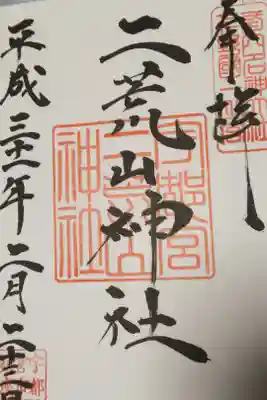 奉拝
二荒山神社
宇都宮二荒山神社
平成三十一年二月二十三日